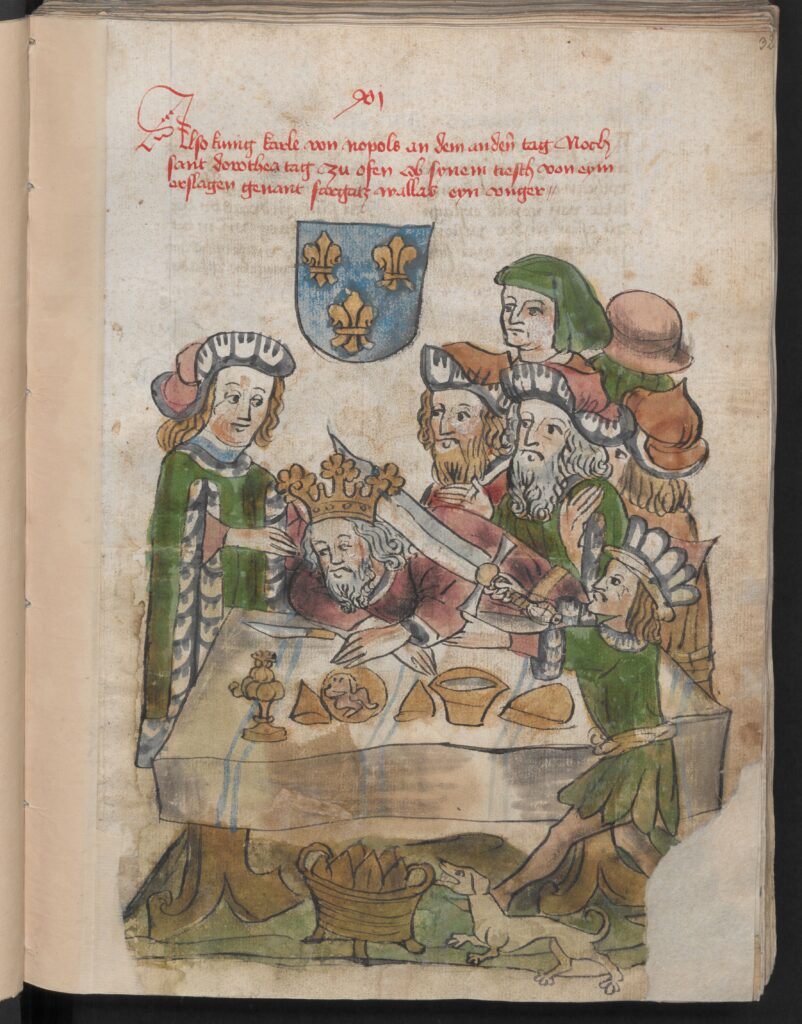 32
xvi
Also kunig karle von nopols an dem andern tag Noch
sant dorothea tag zu ofen ob synem tiesch von eym
erslagen genant fargatz wallas eyn vnger